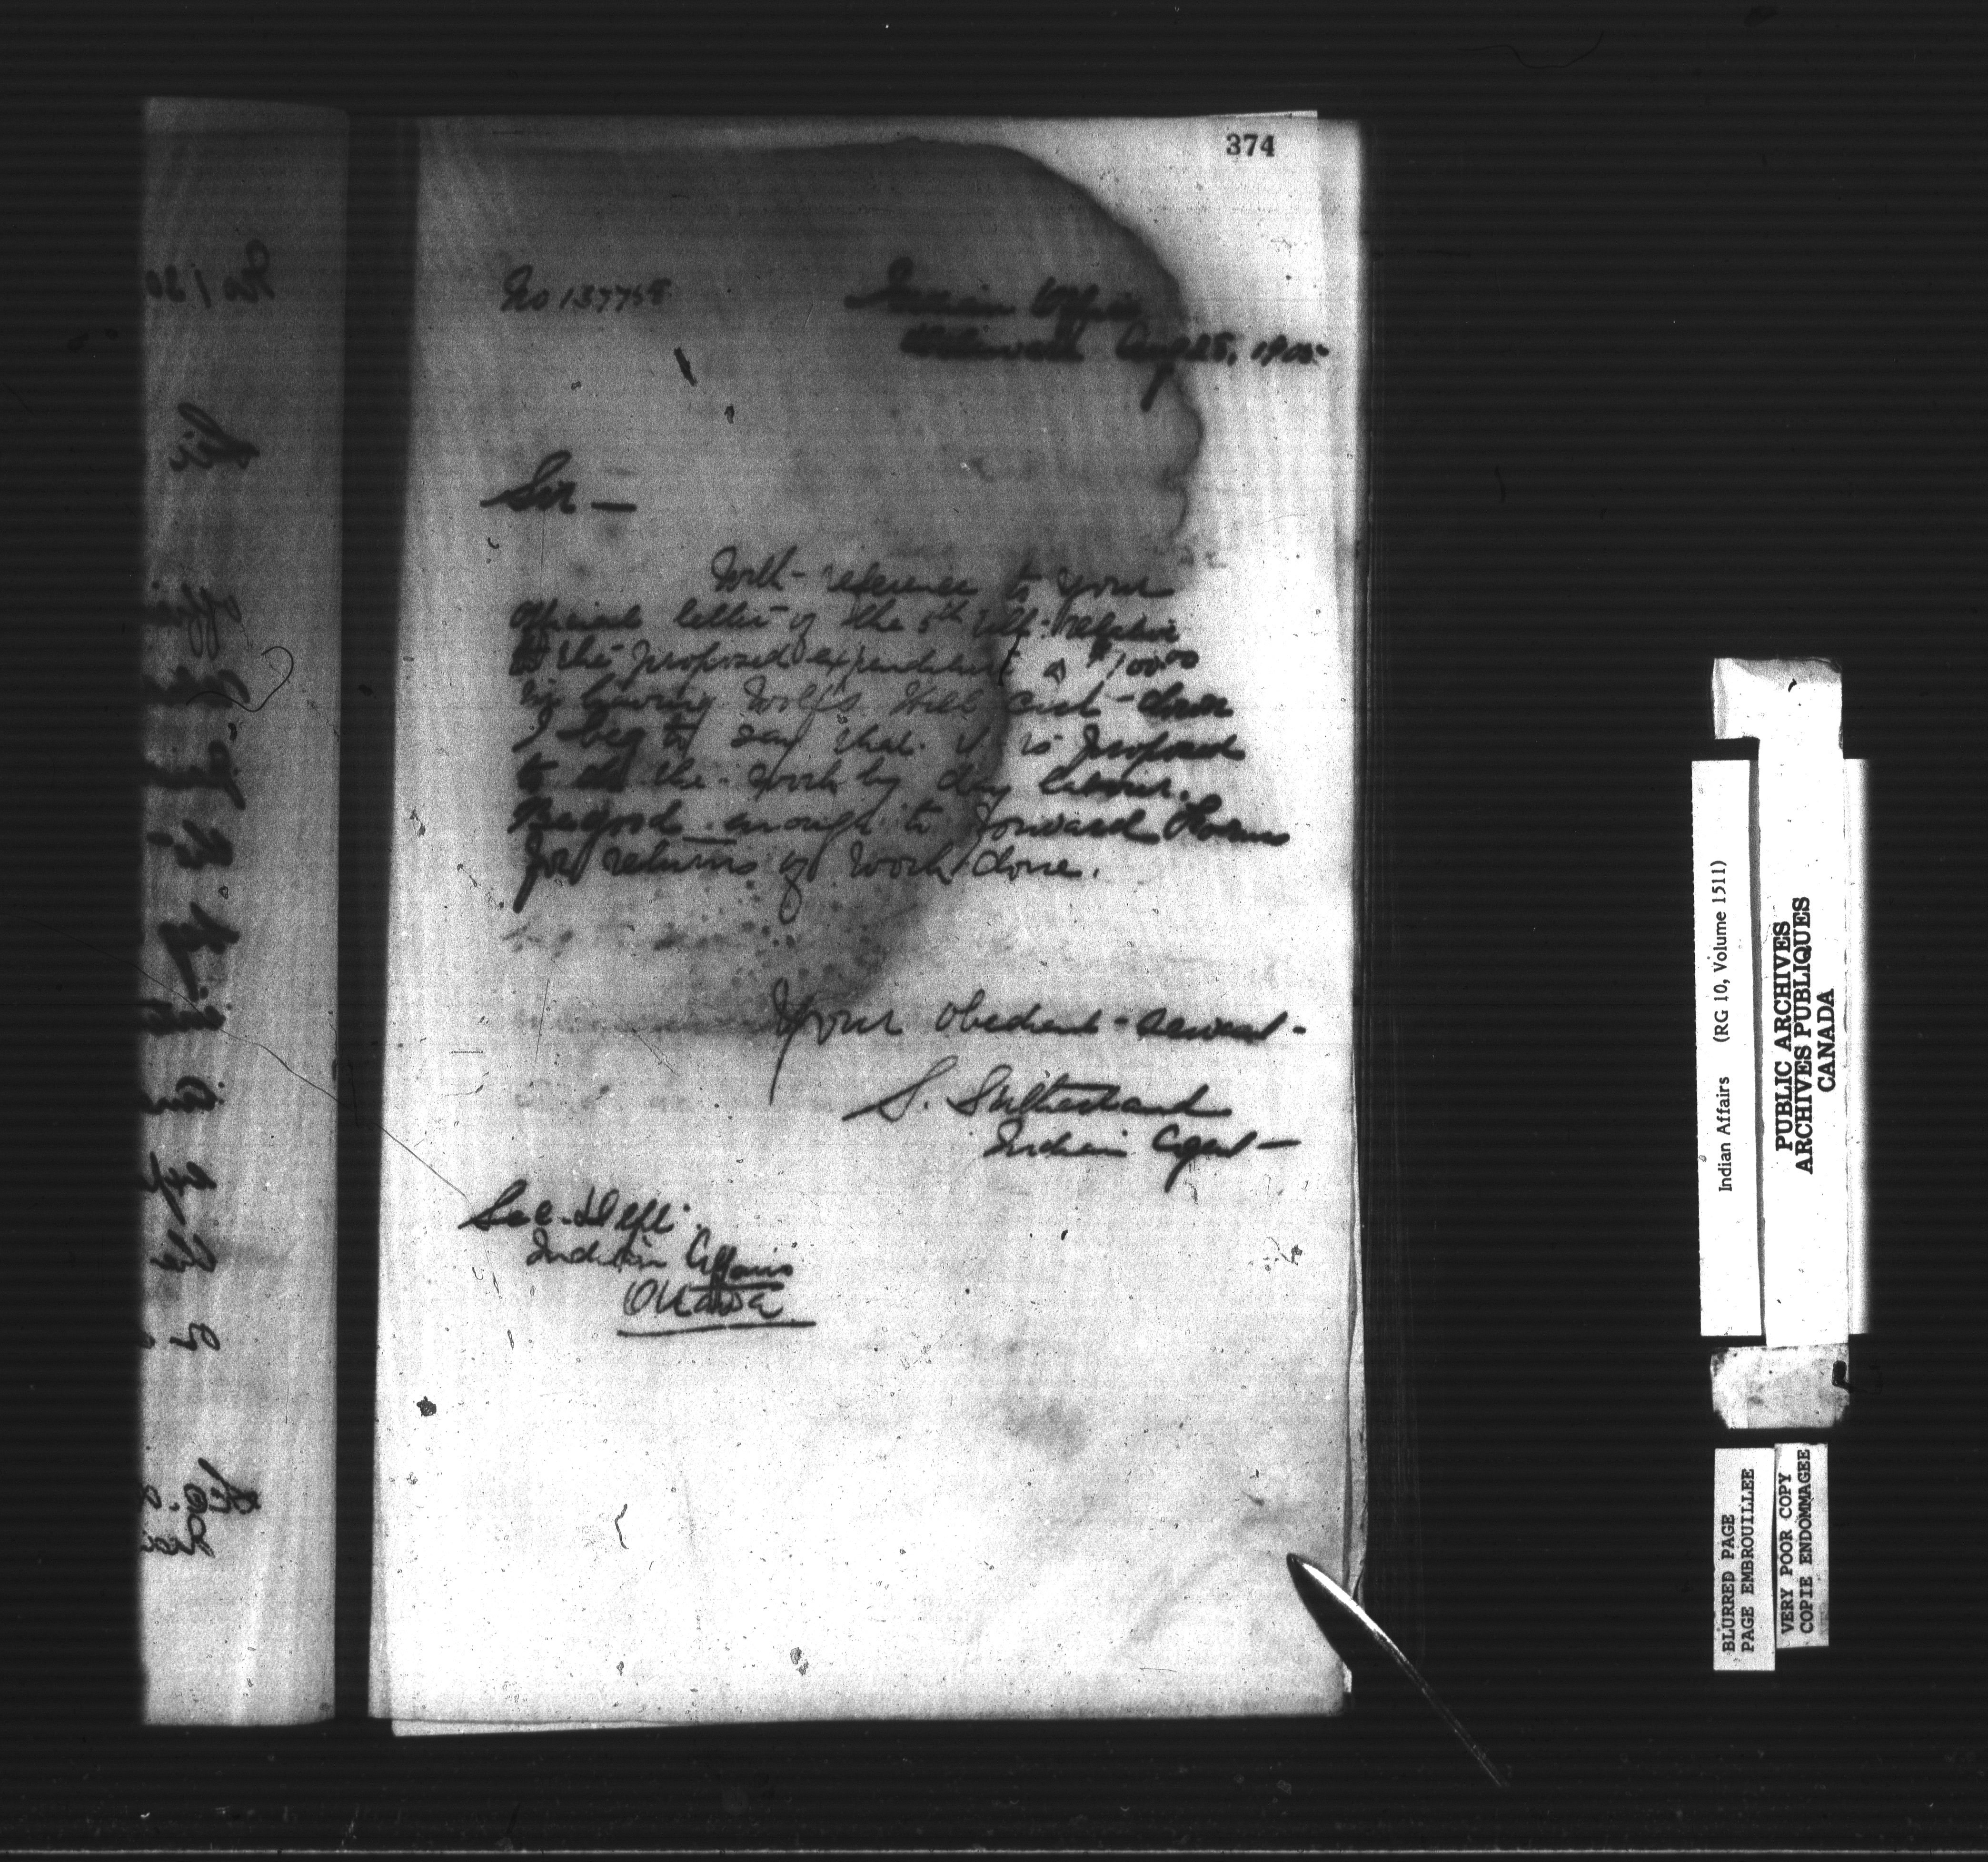 374
No 137758
Indian Office
Aug 25, 1905
Sir —
With reference to your
official letter of the 5th Ult. relative
to the proposed expenditure of $100.00
in having Wolf's Hill cut down
I beg to say that it is proposed
to do the work by day labour.
Be good enough to forward Forms
for returns of work done.
Your obedient servant
S. Sutherland
Indian Agent
Sec. Dept.
Indian Affairs
Ottawa
Indian Affairs (RG 10, Volume 1511)
PUBLIC ARCHIVES
ARCHIVES PUBLIQUES
CANADA
BLURRED PAGE
PAGE EMBROUILLEE
VERY POOR COPY
COPIE ENDOMMAGEE